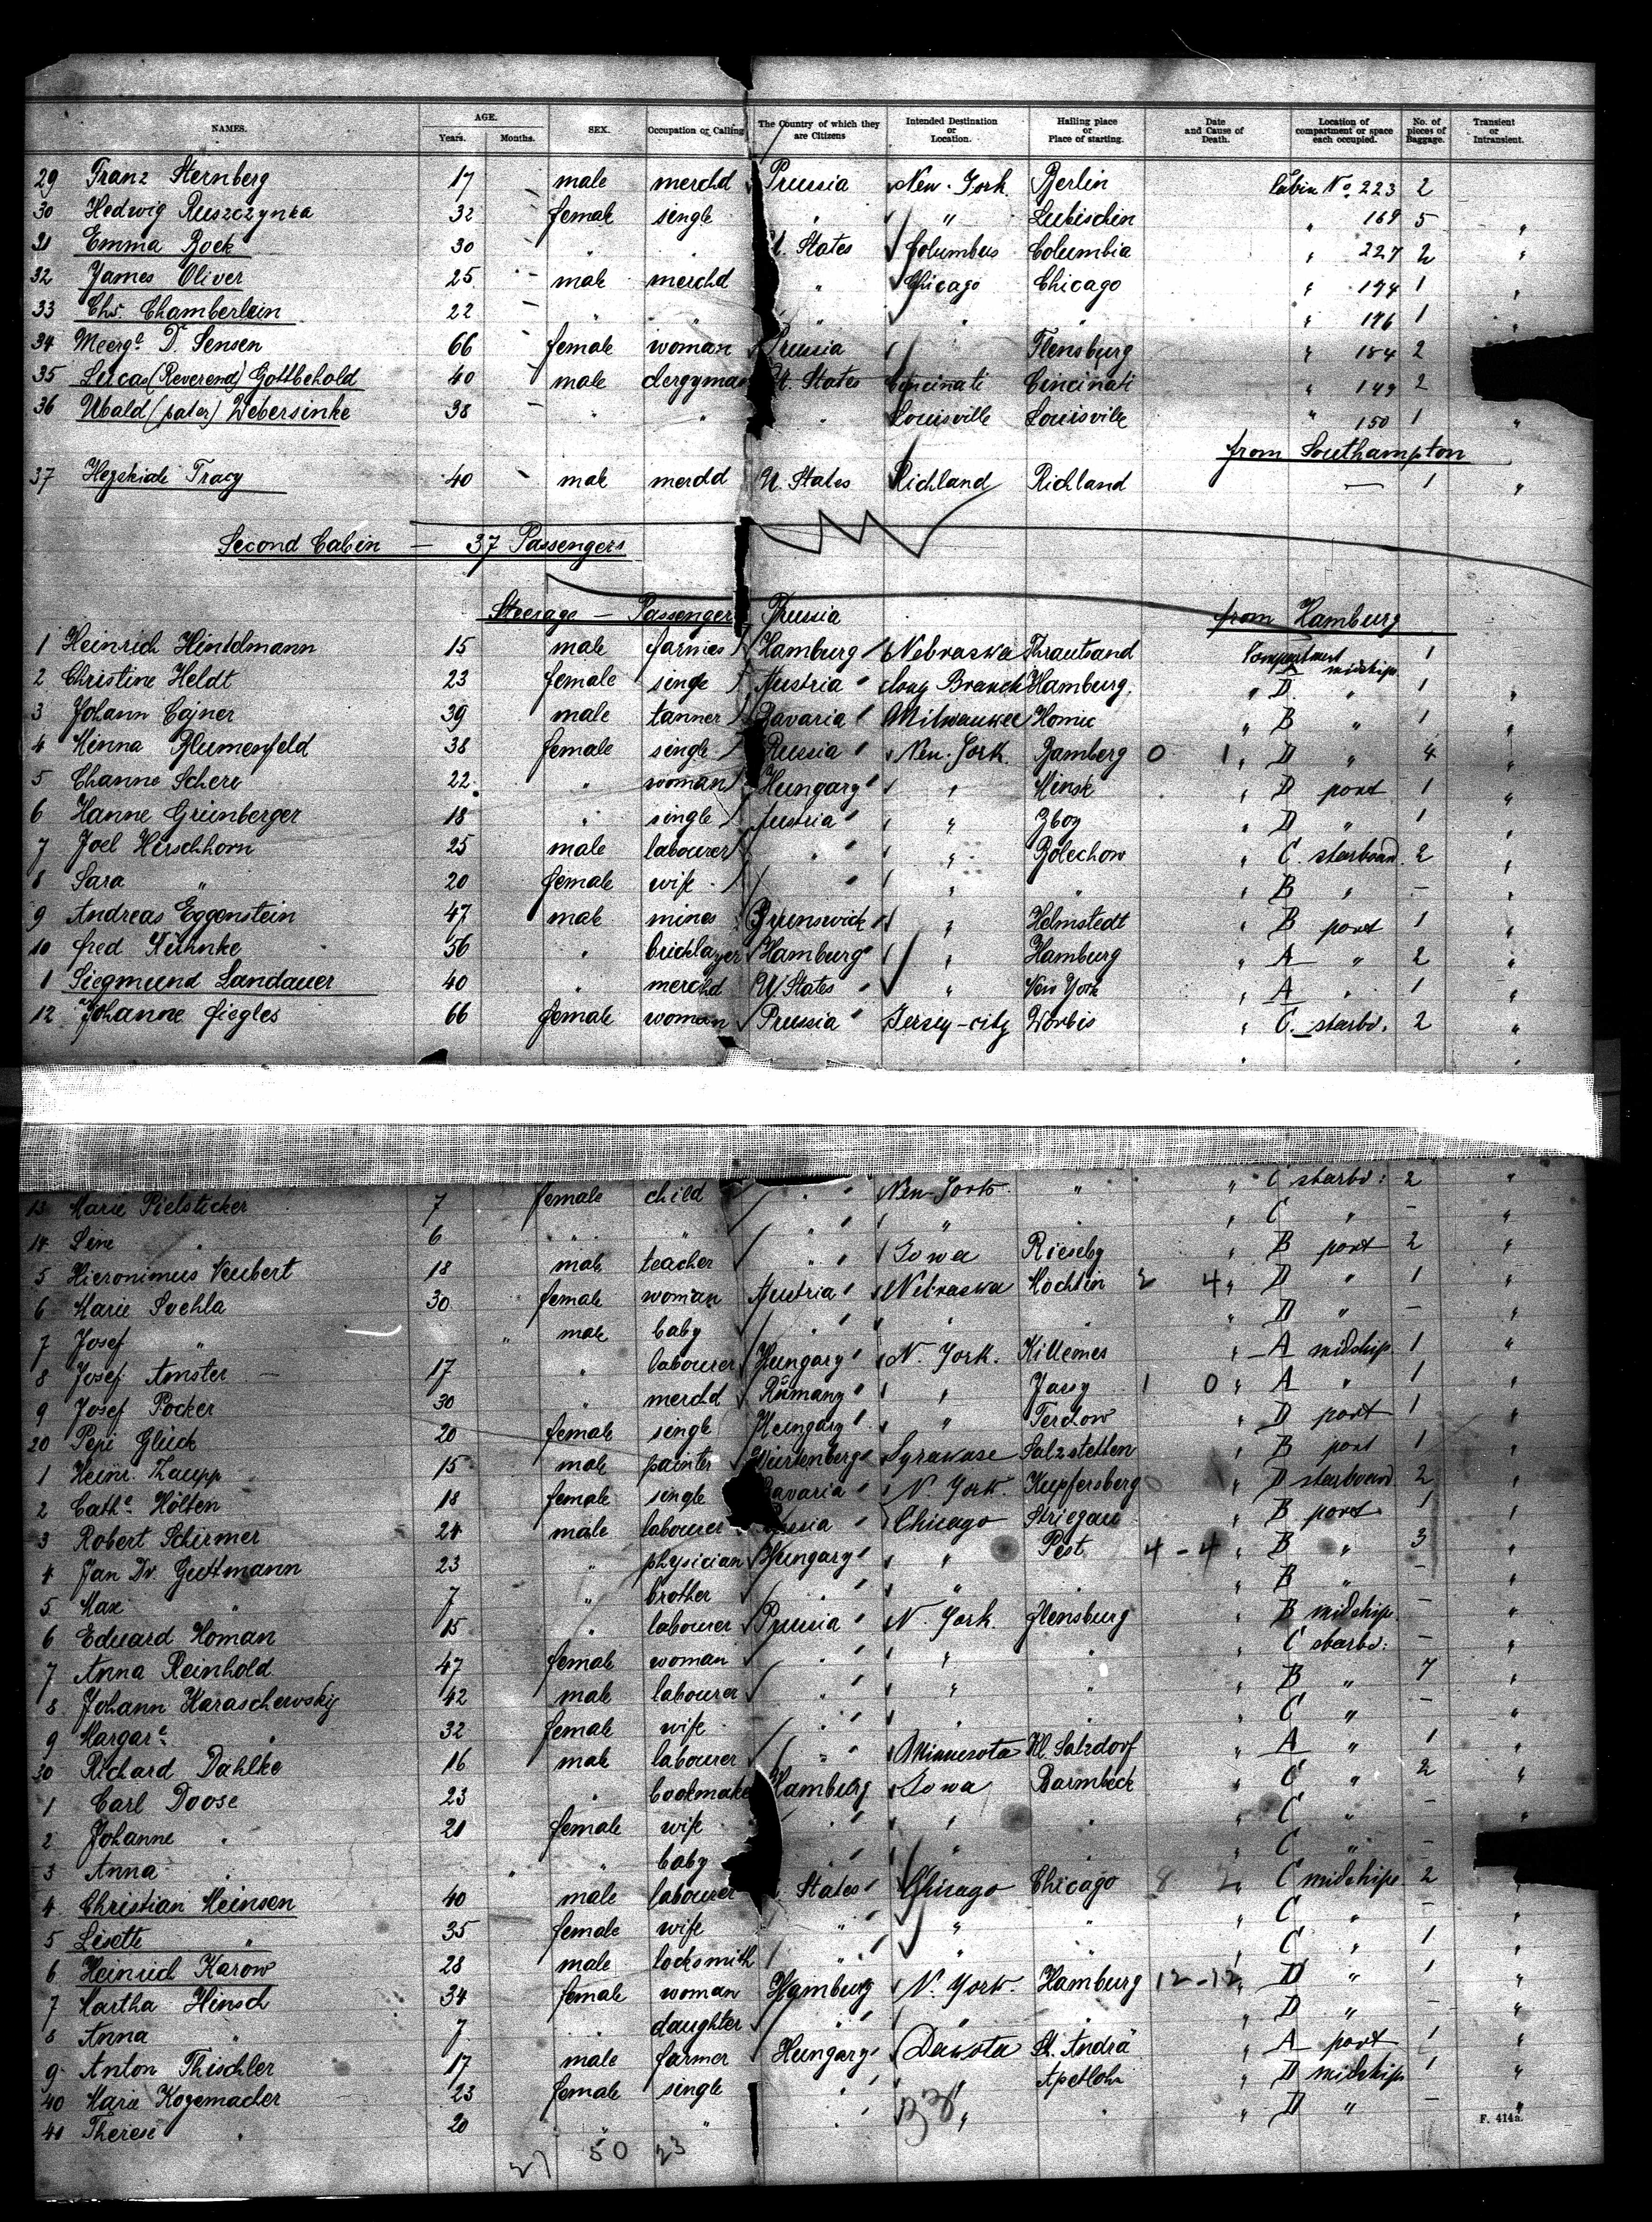 NAMES. AGE. Years. Months. SEX. Occupation or Calling The Country of which they are Citizens Intended Destination or Location. Hailing place or Place of starting. Date and Cause of Death. Location of compartment or space each occupied. No. of pieces of Baggage. Transient or Intransient.
29 Franz Sternberg 17 - male merchd Prussia New-York Berlin Cabin No. 223 2
30 Hedwig Ruszczynka 32 - female single " " Lubischin " 169 5 "
31 Emma Bock 30 - " " U. States Columbus Columbia " 227 2 "
32 James Oliver 25 - male merchd " Chicago Chicago " 174 1 "
33 Chs. Chamberlain 22 - " " " " " " 176 1 "
34 Meergt D. Sensen 66 - female woman Prussia " Flensburg " 184 2
35 Lucas (Reverend) Gottbehold 40 - male clergyman U. States Cincinati Cincinati " 149 2
36 Ubald (pater) Webersinke 38 - " " " Louisville Louisville " 150 1 "
from Southampton
37 Hezkiah Tracy 40 - male merchd U. States Richland Richland — 1 "
Second Cabin — 37 Passengers
Steerage — Passengers Prussia from Hamburg
1 Heinrich Hinkelmann 15 male farmer Hamburg Nebraska Thrautsand Compartment midships 1
2 Christine Heldt 23 female single Austria Long Branch Hamburg. " D. " 1 "
3 Johann Cajner 39 male tanner Bavaria Milwaukee Homic " B " 1 "
4 Minna Blumenfeld 38 female single Russia New-York. Bamberg 0 1 " D " 4 "
5 Channe Schere 22 " woman Hungary " Minsk " D port 1 "
6 Hanne Grünberger 18 " single Austria " Zboy " D " 1 "
7 Joel Hirschhorn 25 male labourer " " Bolechow " C. starboard 2 "
8 Sara " 20 female wife " " " " B " - "
9 Andreas Eggenstein 47 male miner Brunswick " Helmstedt " B port 1 "
10 Fred Kühnke 56 " bricklayer Hamburg " Hamburg " A " 2 "
1 Siegmund Landauer 40 " merchd U States " New York " A " 1 "
12 Johanne Fiegles 66 female woman Prussia Jersey-city Worbis " C. starbd. 2 "
13 Marie Pielsticker 7 female child " New-York " " C starbd: 2 "
14 Line " 6 " " " " " " C " - "
5 Hieronimus Neubert 18 male teacher " Iowa Rieseby " B port 2 "
6 Marie Sochla 30 female woman Austria Nebraska Hochtin 2 4 " D " 1 "
7 Josef " " male baby " " " D " - "
8 Josef Amster 17 " labourer Hungary N. York. Killemes " A midship 1 "
9 Josef Pocker 30 " merchd Rumany " Jassy 1 0 " A " 1 "
20 Pepi Glück 20 female single Hungary " Terchow " D port 1 "
1 Heinr. Thaupp 15 male painter Würtenberg Syracuse Salzstetten " B port 1 "
2 Cathe Hölten 18 female single Bavaria N. York. Kupfersberg " D starboard 2 "
3 Robert Schirmer 24 male labourer Chicago Striegau " B port 1 "
4 Jan Dr. Guttmann 23 " physician Hungary " Pest 4 - 4 " B " 3 "
5 Max " 7 " brother " " " " B " - "
6 Eduard Homan 15 " labourer Prussia N. York. Flensburg " B midship - "
7 Anna Reinhold 47 female woman " " " " C starbd: - "
8 Johann Karaschewsky 42 male labourer " " " " B " 7 "
9 Margare " 32 female wife " " " " C " - "
30 Richard Dahlke 16 male labourer " Minnesota Kl. Salzdorf " A " 1 "
1 Carl Doose 23 " bookmaker Hamburg Iowa Barmbeck " C " 2 "
2 Johanne " 21 female wife " " " " C " - "
3 Anna " " " baby " " " C " - "
4 Christian Meinsen 40 male labourer States Chicago Chicago 8 2 " C midships 2 "
5 Lisette " 35 female wife " " " " C " - "
6 Heinrich Karow 28 male locksmith " " " " C " 1 "
7 Martha Hinsch 34 female woman Hamburg N. York. Hamburg 12-12 " D " 1 "
8 Anna " 7 " daughter " " " D " - "
9 Anton Thischler 17 male farmer Hungary Dakota St. Andrä " A port 1 "
40 Marie Kogemacher 23 female single " " Apetlohn " D midship 1 "
41 Therese " 20 " " " " " " D " - "
F. 414a.
27 50 23